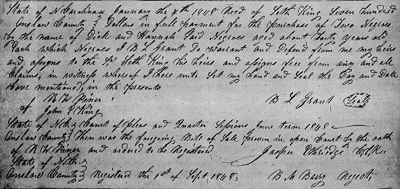 State of N Carolina January the 8th 1848 Recd of Seth King Seven hundred
Onslow County } Dollars in full payment for the purchase of Two Negroes
by the name of Dick and Hannah Said Negroes aged about forty years old
Each which Negroes I B L Grant Do warrant and Defend from me my heirs
and assigns to the Sd Seth King his heirs and assigns free from any and all
Claims, in witness whereof I here unto Set my hand and Seal the Day and Date
above mentioned, in the presents
of B L Grant (Seal)
of John King
State of Nth Court of Pleas and Quarter Sessions June term 1848
Onslow County } Then was the foregoing Bill of Sale proven in open Court by the oath
of and ordered to be Registered Jasper Etheridge Clk
State of Nth
Onslow County } Registered the of Sept 1848. Regstr